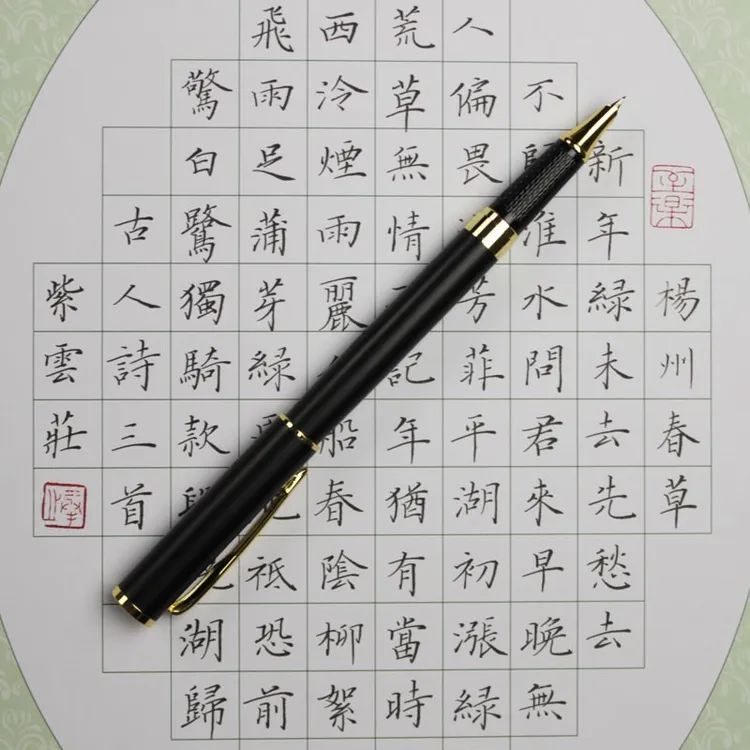 楊州春草
新年綠未去先愁去
不淮水問君來早晚無
人偏畏芳菲平湖初漲綠
荒草無情記年猶有當時
西泠煙雨麗船春陰柳絮
飛雨足蒲芽綠祗恐前
驚白鷺獨騎款段湖歸
古人詩三首
紫雲莊